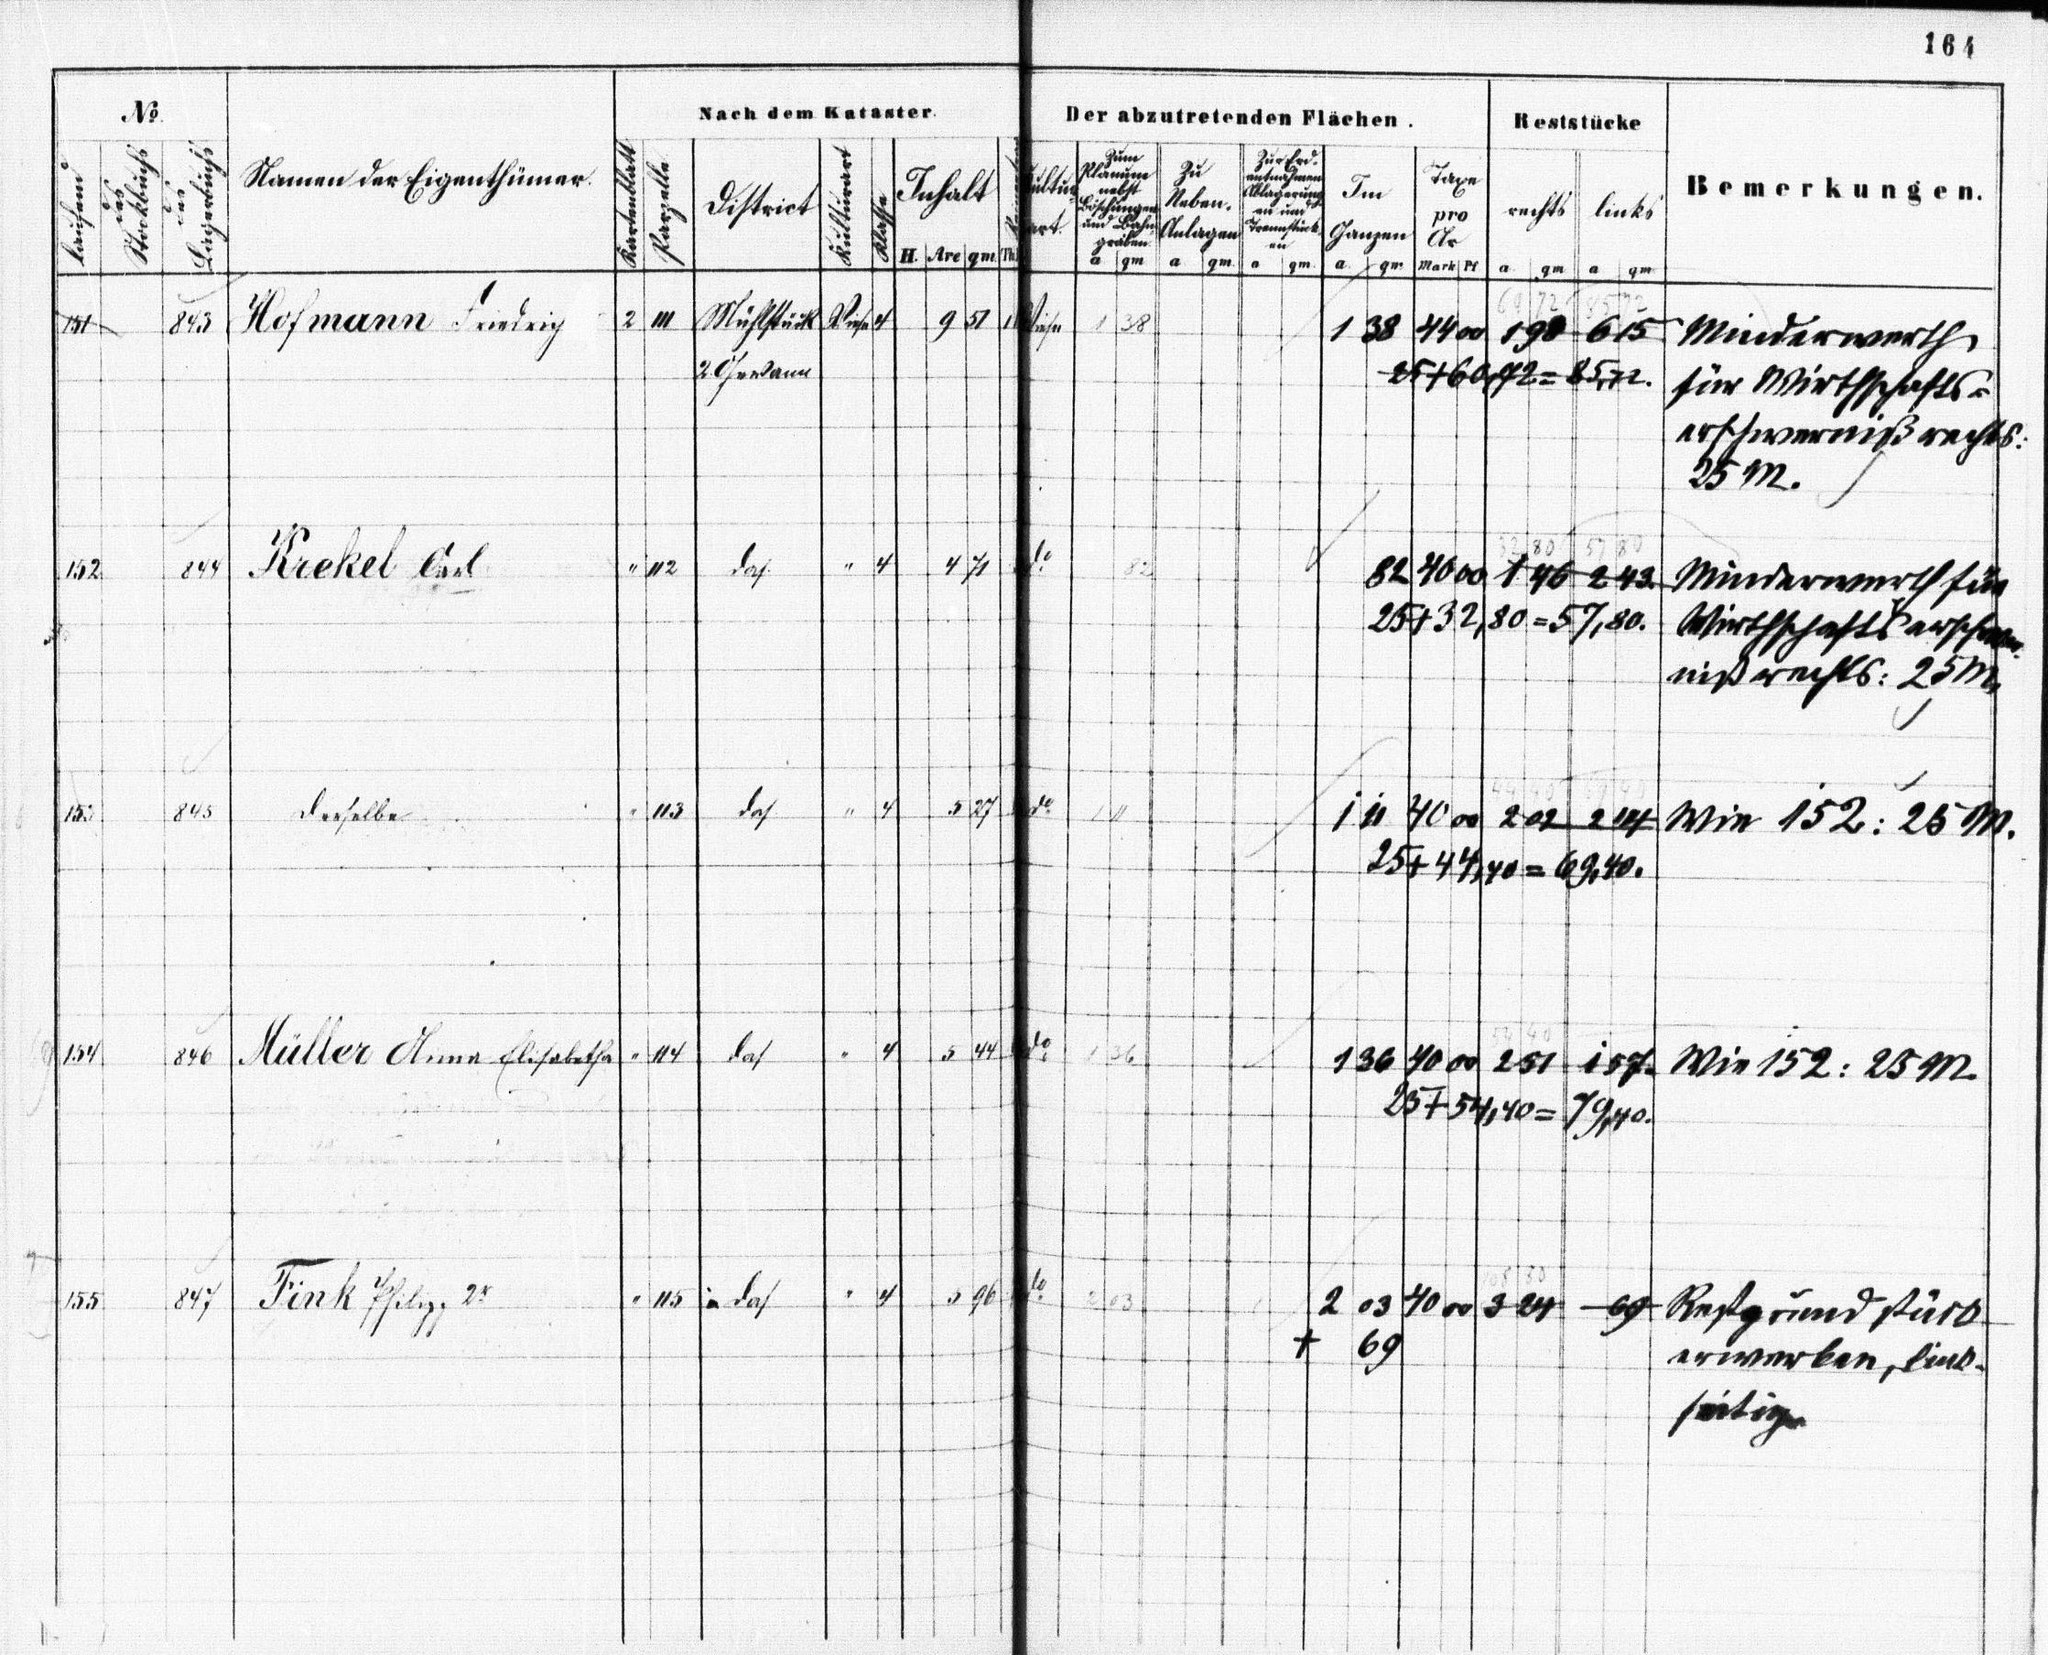 164
No. Nach dem Kataster. Der abzutretenden Flächen. Reststücke
laufend des Stockbuchs des Lagerbuchs Namen der Eigenthümer. Kartenblatt Parzelle District Kulturart Klasse Inhalt Kultur-art. Zum Planum nebst Böschungen und Bahngräben Zu Neben-Anlagen Zur Erdentnahmen Ablagerungen und Trennstücken Im Ganzen Taxe pro Ar rechts links Bemerkungen.
H. Are qm. Th. a qm a qm. a qm. a. qm Mark Pf a qm a qm
60 72 85 72
151 843 Hofmann Friedrich 2 111 Mühlstück Wiese 4 9 51 Wiese 1 38 1 38 44 00 1 98 6 15 Minderwerth
2 Gewann 25 + 60,72 = 85,72. für Wirthschafts-
erschwerniß rechts:
25 M.
32 80 57 80
152 844 Krekel Carl " 112 das. " 4 4 71 do 82 82 40 00 1 46 2 43 Minderwerth für
25 + 32,80 = 57,80. Wirthschaftserschwer-
niß rechts: 25 M.
44 40 69 40
153 845 Derselbe " 113 das " 4 5 27 do 1 11 1 11 40 00 2 02 2 14 Wie 152: 25 M.
25 + 44,40 = 69,40.
54 40
154 846 Müller Anna Elisabetha " 114 das " 4 5 44 do 1 36 1 36 40 00 2 51 1 57 Wie 152: 25 M.
25 + 54,40 = 79,40.
108 80
155 847 Fink Philipp 2r " 115 das " 4 5 96 do 2 03 2 03 40 00 3 24 69 Restgrundstück
+ 69 erwerben, link-
seitig